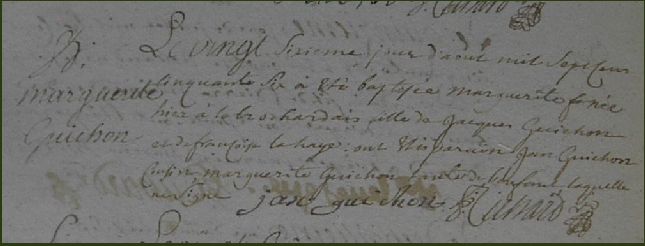 B.
marguerite
Guichon
Le vingt sixieme jour d'aout mil sept cens
cinquante six a été baptisée marguerite fœnée
hier à la brochardais fille de Jacques Guichon
et de françoise la haye: ont été parain Jan Guichon
marguerite Guichon tante de l'enfant laquelle
ne signe
jan guichon